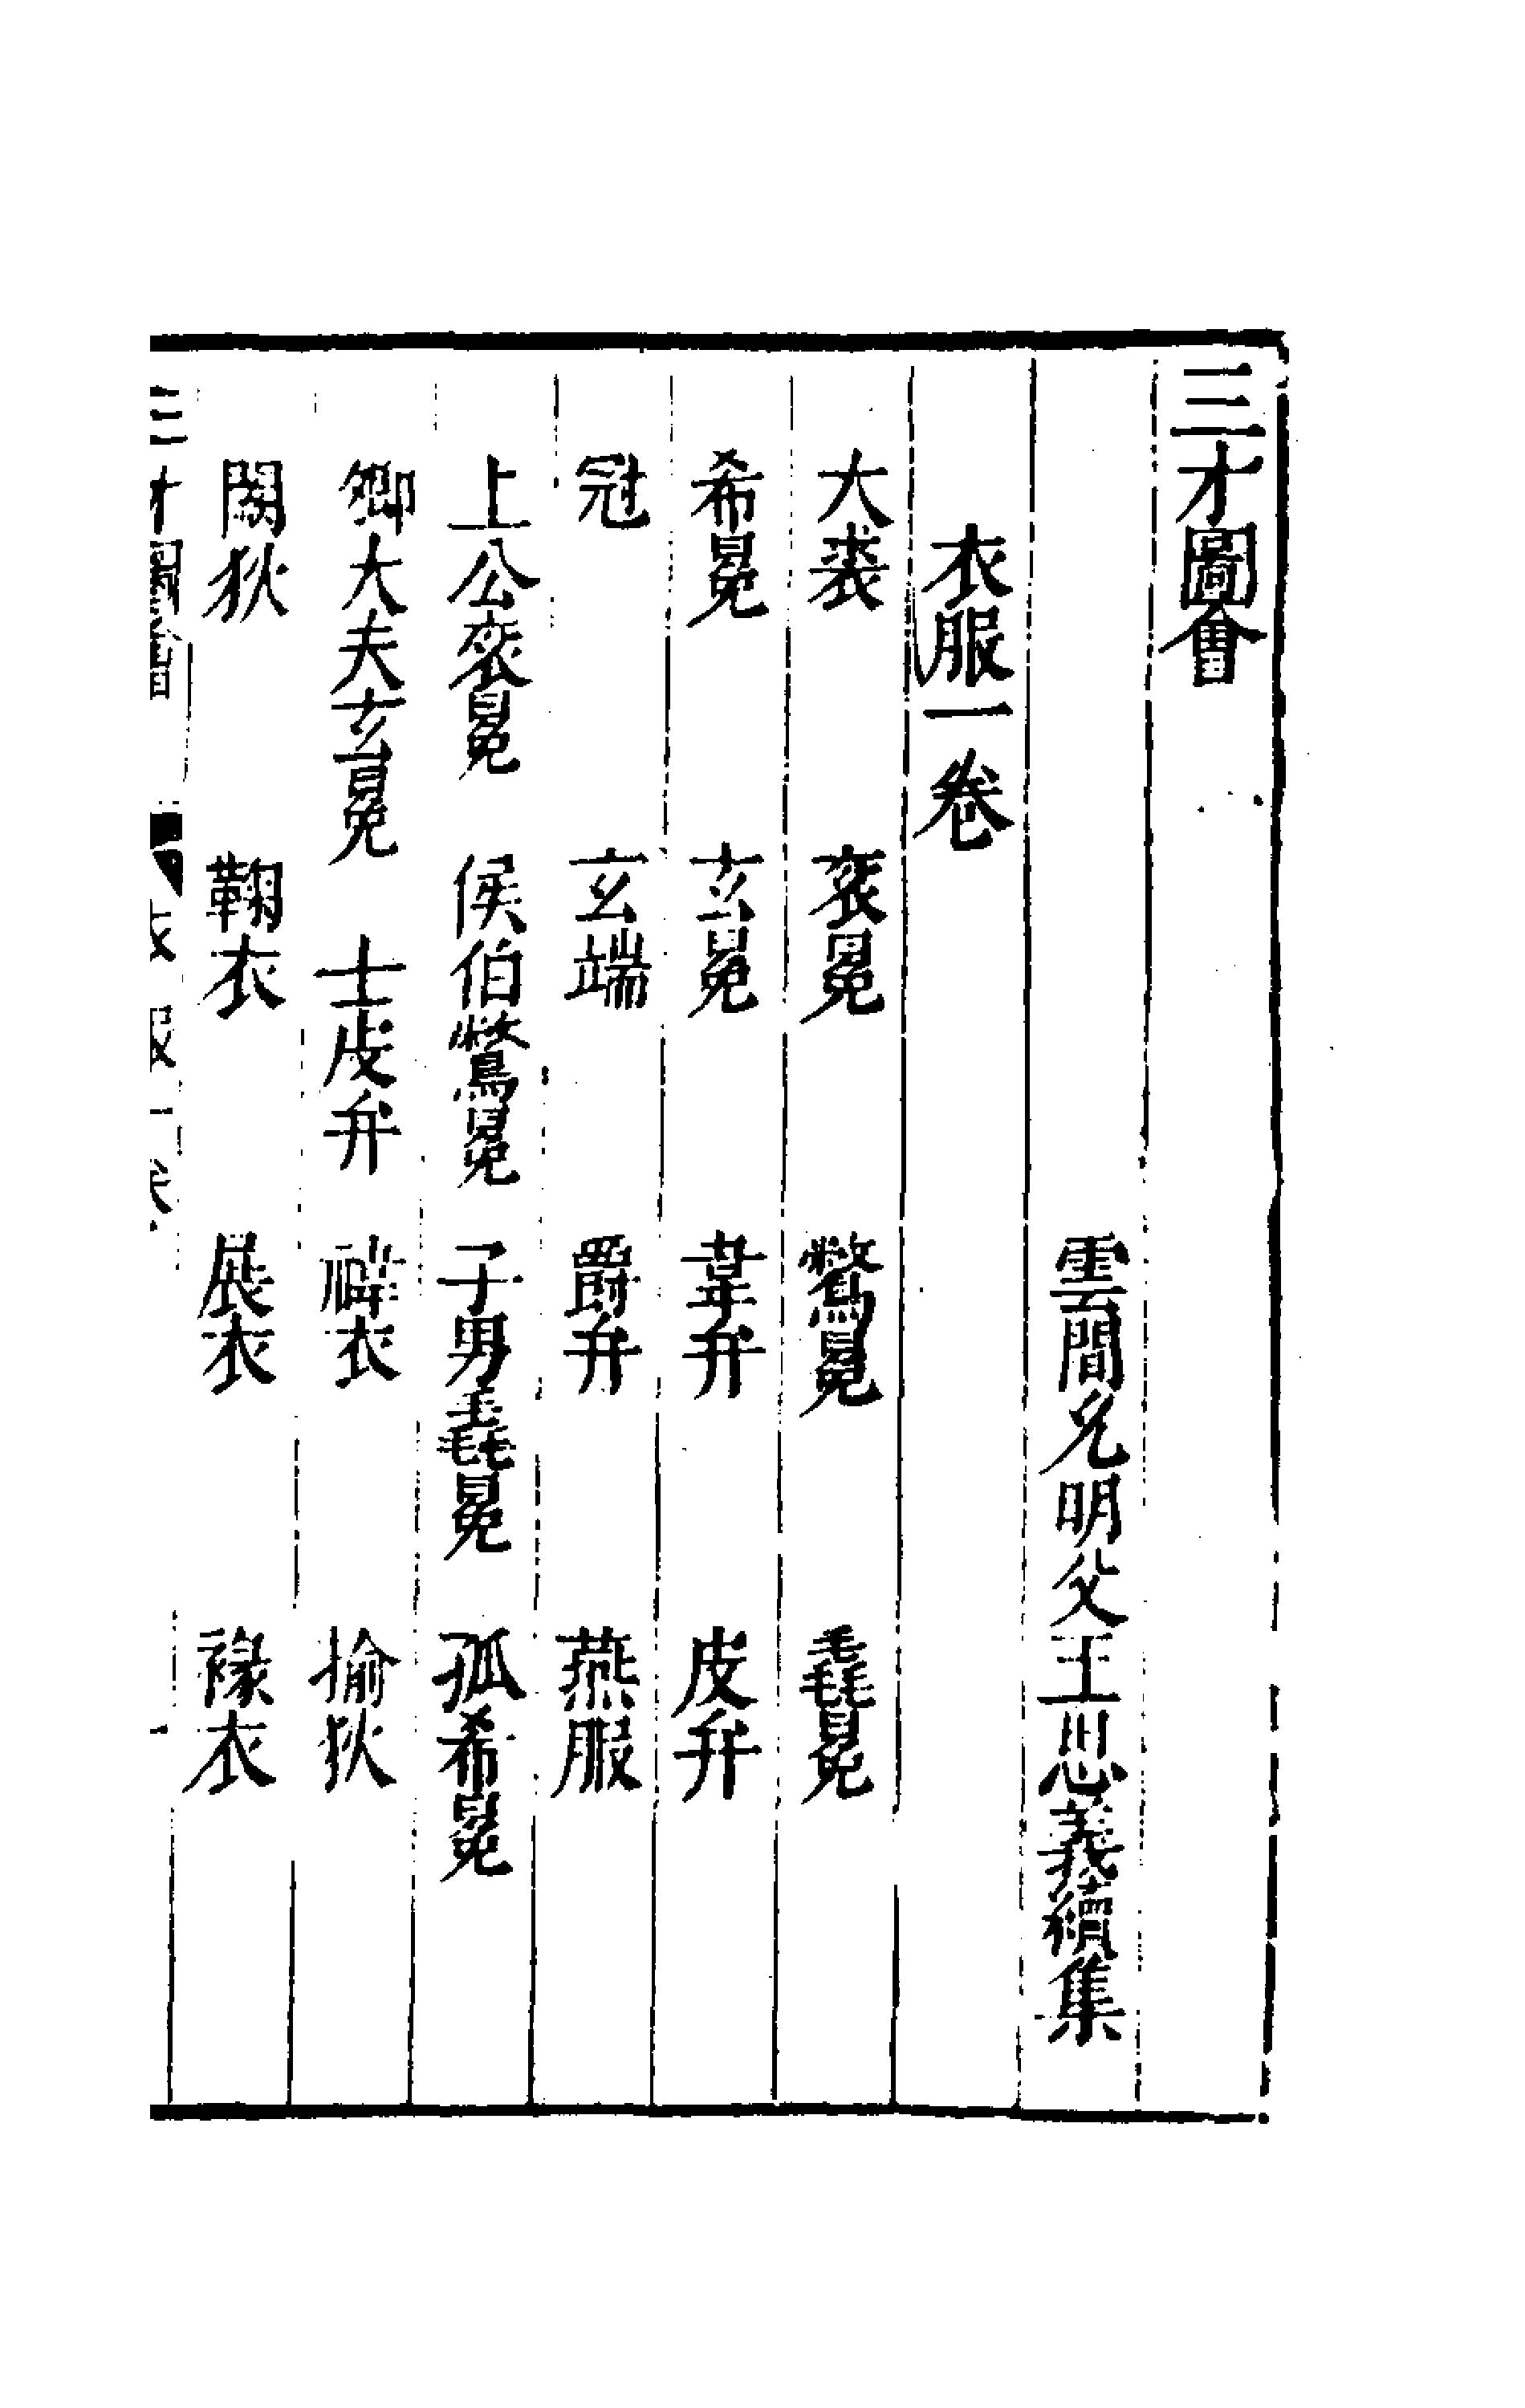 三才圖會
雲間允明父王思義續集
衣服一卷
大裘　袞冕　鷩冕　毳冕
希冕　玄冕　韋弁　皮弁
冠　玄端　爵弁　燕服
上公袞冕　侯伯鷩冕　子男毳冕　孤希冕
卿大夫玄冕　士皮弁　褘衣　揄狄
闕狄　鞠衣　展衣　褖衣
三才圖會　衣服一卷　一